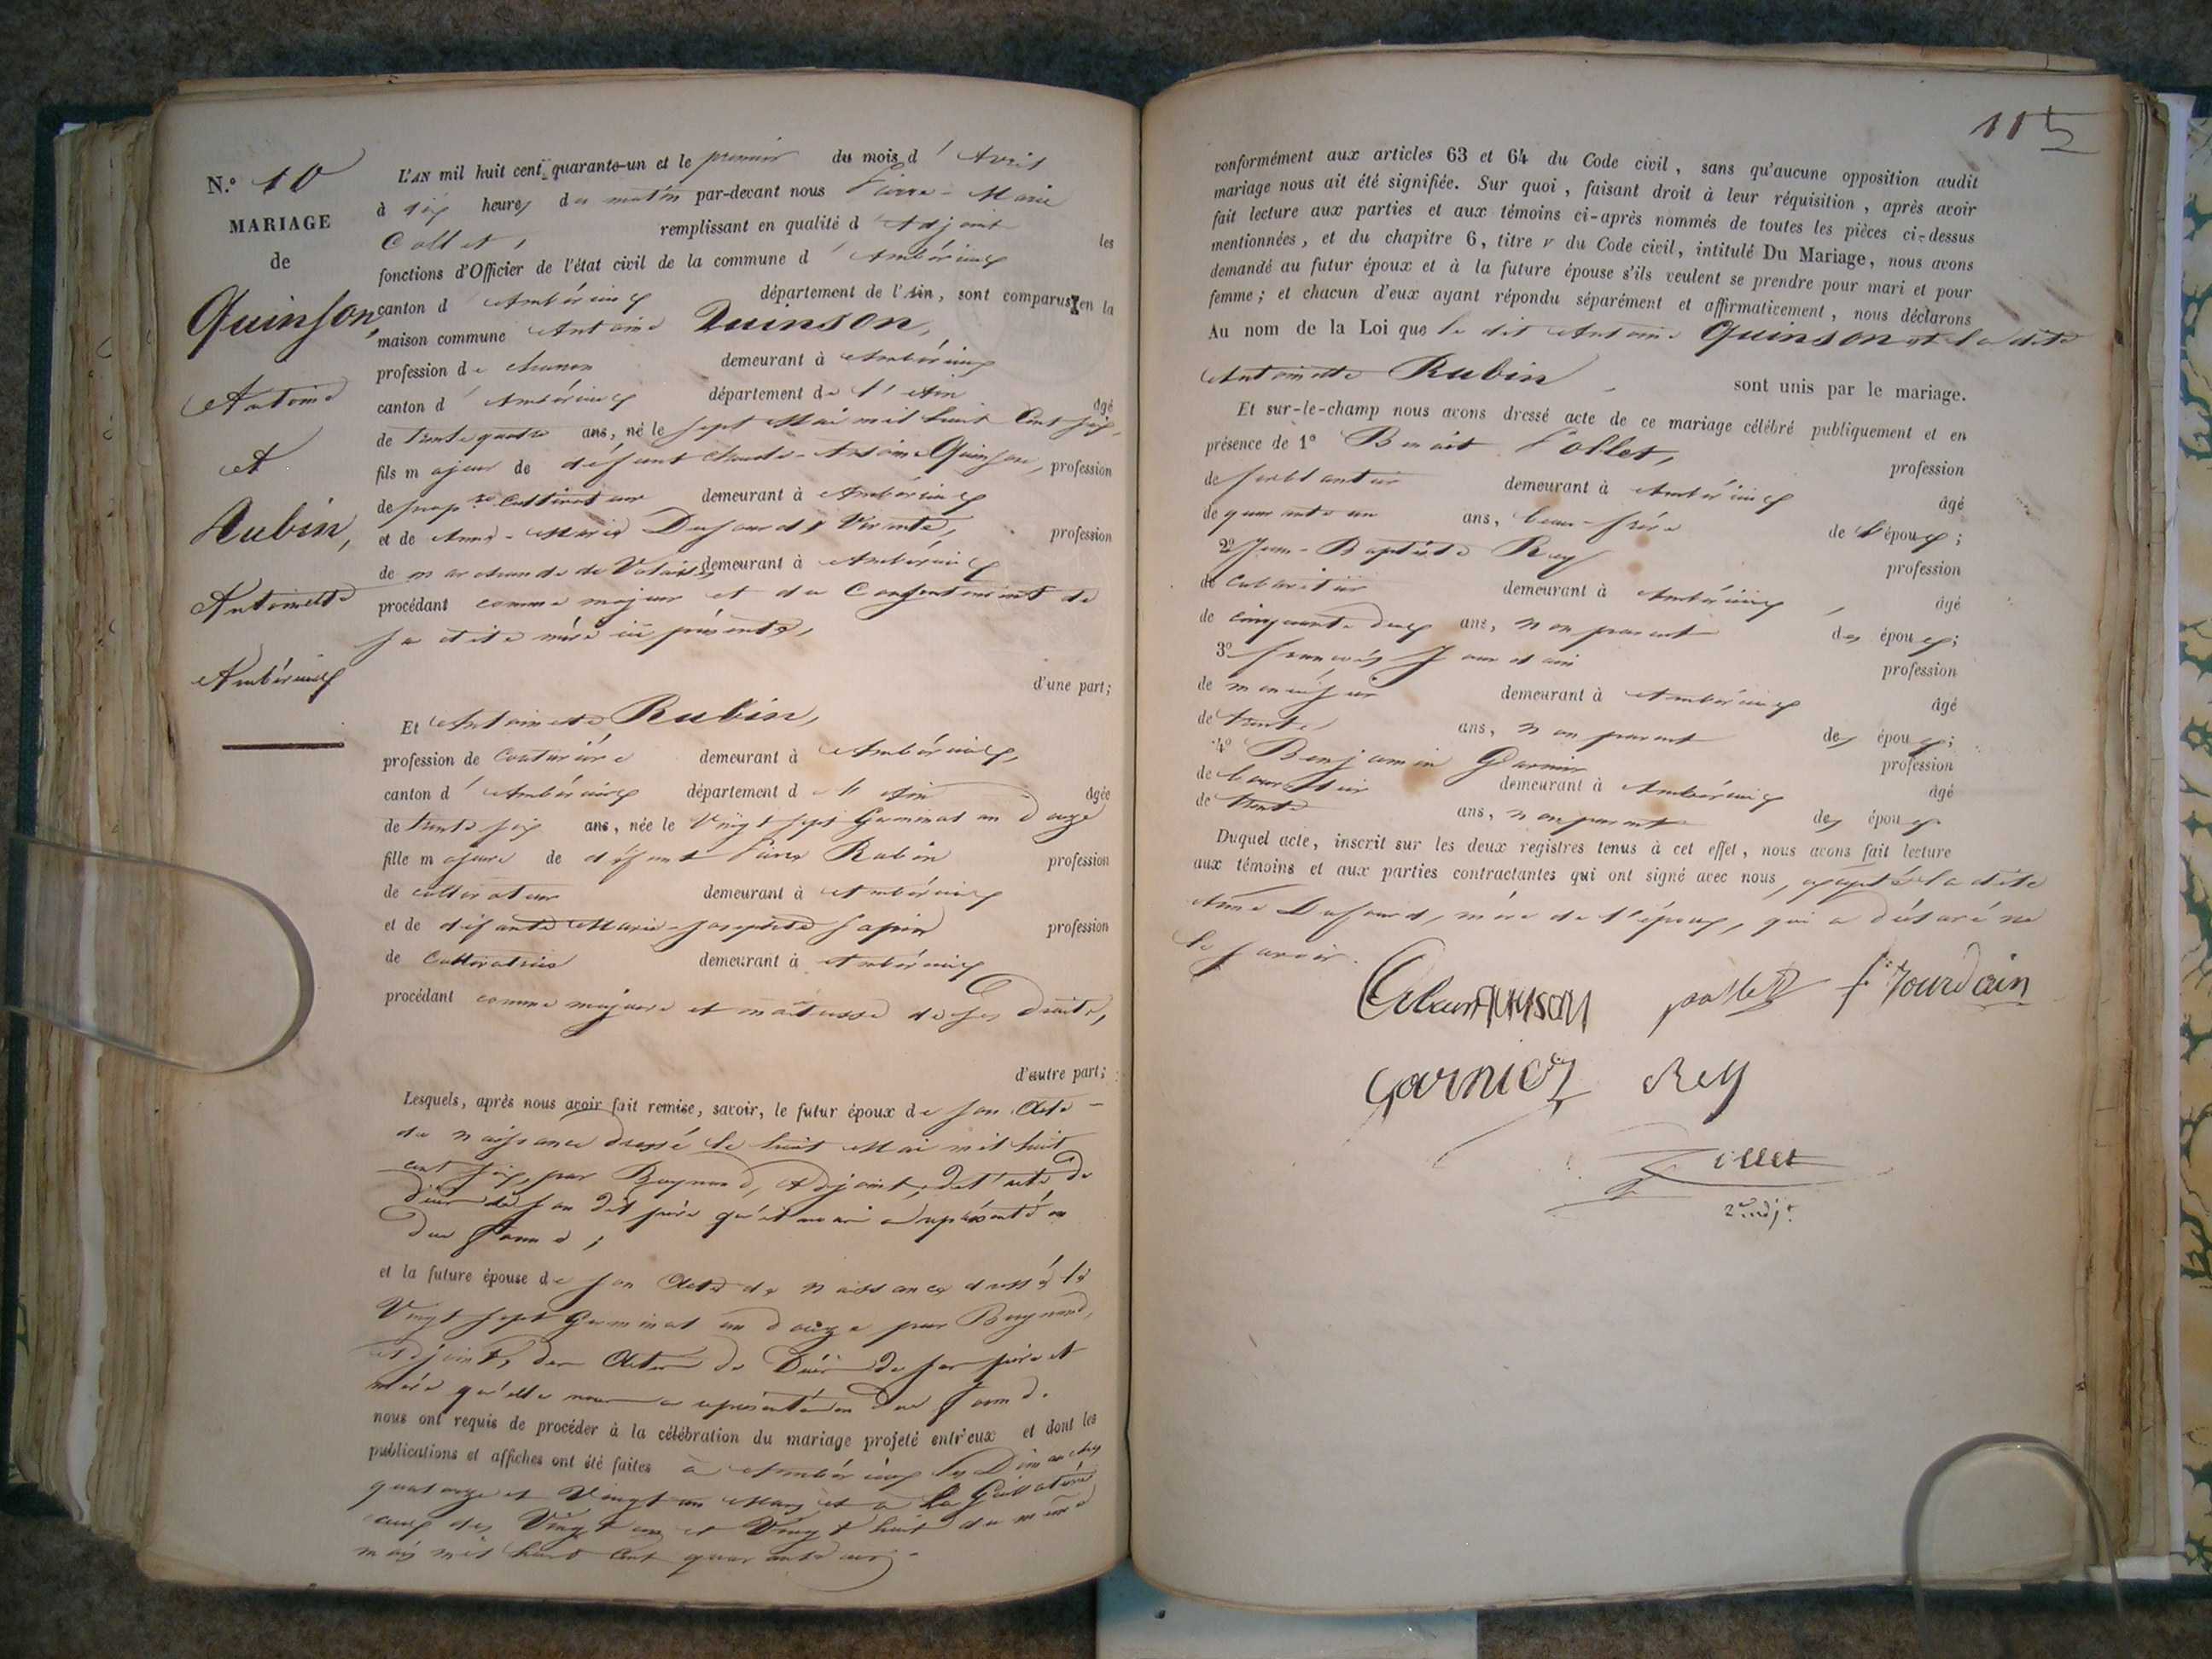 N.º 10
MARIAGE
de
Quinson,
Antoine
et
Rubin,
Antoinette
Ambérieux
L'AN mil huit cent quarante-un et le premier du mois d'Avril
à dix heures du matin par-devant nous Pierre-Marie
Collet, remplissant en qualité d'Adjoint les
fonctions d'Officier de l'état civil de la commune d'Ambérieux
canton d'Ambérieux département de l'Ain, sont comparus en la
maison commune Antoine Quinson,
profession de demeurant à Ambérieux
canton d'Ambérieux département de l'Ain âgé
de trente quatre ans, né le sept Mai mil huit Cent six,
fils majeur de défunt Claude-Antoine Quinson, profession
de prop.re Cultivateur demeurant à Ambérieux
et de Anne-Marie Dufour, Vivante, profession
de marchande de demeurant à Ambérieux
procédant comme majeur et du Consentement de
sa dite mère ici présente,
d'une part;
Et Antoinette Rubin,
profession de Couturière demeurant à Ambérieux,
canton d'Ambérieux département de l'Ain âgée
de trente six ans, née le Vingt sept Germinal an douze
fille majeure de défunt Pierre Rubin profession
de cultivateur demeurant à Ambérieux
et de défunte Marie-Josephte Sapin profession
de Cultivatrice demeurant à Ambérieux
procédant comme majeure et maîtresse de ses Droits,
d'autre part;
Lesquels, après nous avoir fait remise, savoir, le futur époux de son Acte
de naissance dressé le huit Mai mil huit
cent six, par Adjoint, de l'acte de
décès de son dit père représenté en
due forme;
et la future épouse de son Acte de naissance dressé le
Vingt sept Germinal an douze par
Adjoint, des Actes de Décès de ses père et
mère qu'elle nous a représentés en due forme.
nous ont requis de procéder à la célébration du mariage projeté entr'eux et dont les
publications et affiches ont été faites à Ambérieux les Dimanches
quatorze et Vingt un Mars et à La Guillotière
ceux des Vingt un et Vingt huit du même
mois mil huit Cent quarante un.
115
conformément aux articles 63 et 64 du Code civil, sans qu'aucune opposition audit
mariage nous ait été signifiée. Sur quoi, faisant droit à leur réquisition, après avoir
fait lecture aux parties et aux témoins ci-après nommés de toutes les pièces ci-dessus
mentionnées, et du chapitre 6, titre V du Code civil, intitulé Du Mariage, nous avons
demandé au futur époux et à la future épouse s'ils veulent se prendre pour mari et pour
femme; et chacun d'eux ayant répondu séparément et affirmativement, nous déclarons
Au nom de la Loi que le dit Antoine Quinson et la dite
Antoinette Rubin, sont unis par le mariage.
Et sur-le-champ nous avons dressé acte de ce mariage célébré publiquement et en
présence de 1º Benoit Pollet, profession
de ferblantier demeurant à Ambérieux âgé
de quarante un ans, beau-frère de l'époux;
2º Jean-Baptiste Rey profession
de Cabaretier demeurant à Ambérieux, âgé
de cinquante deux ans, non parent des époux;
3º François Jourdain profession
de menuisier demeurant à Ambérieux âgé
de trente ans, non parent des époux;
4º Benjamin Garnier profession
de bourrelier demeurant à Ambérieux âgé
de trente ans, non parent des époux
Duquel acte, inscrit sur les deux registres tenus à cet effet, nous avons fait lecture
aux témoins et aux parties contractantes qui ont signé avec nous, excepté la dite
Anne Dufour, mère de l'époux, qui a déclaré ne
le savoir.
quinson pollet f. Jourdain
garnier Rey
Collet
2e adjt